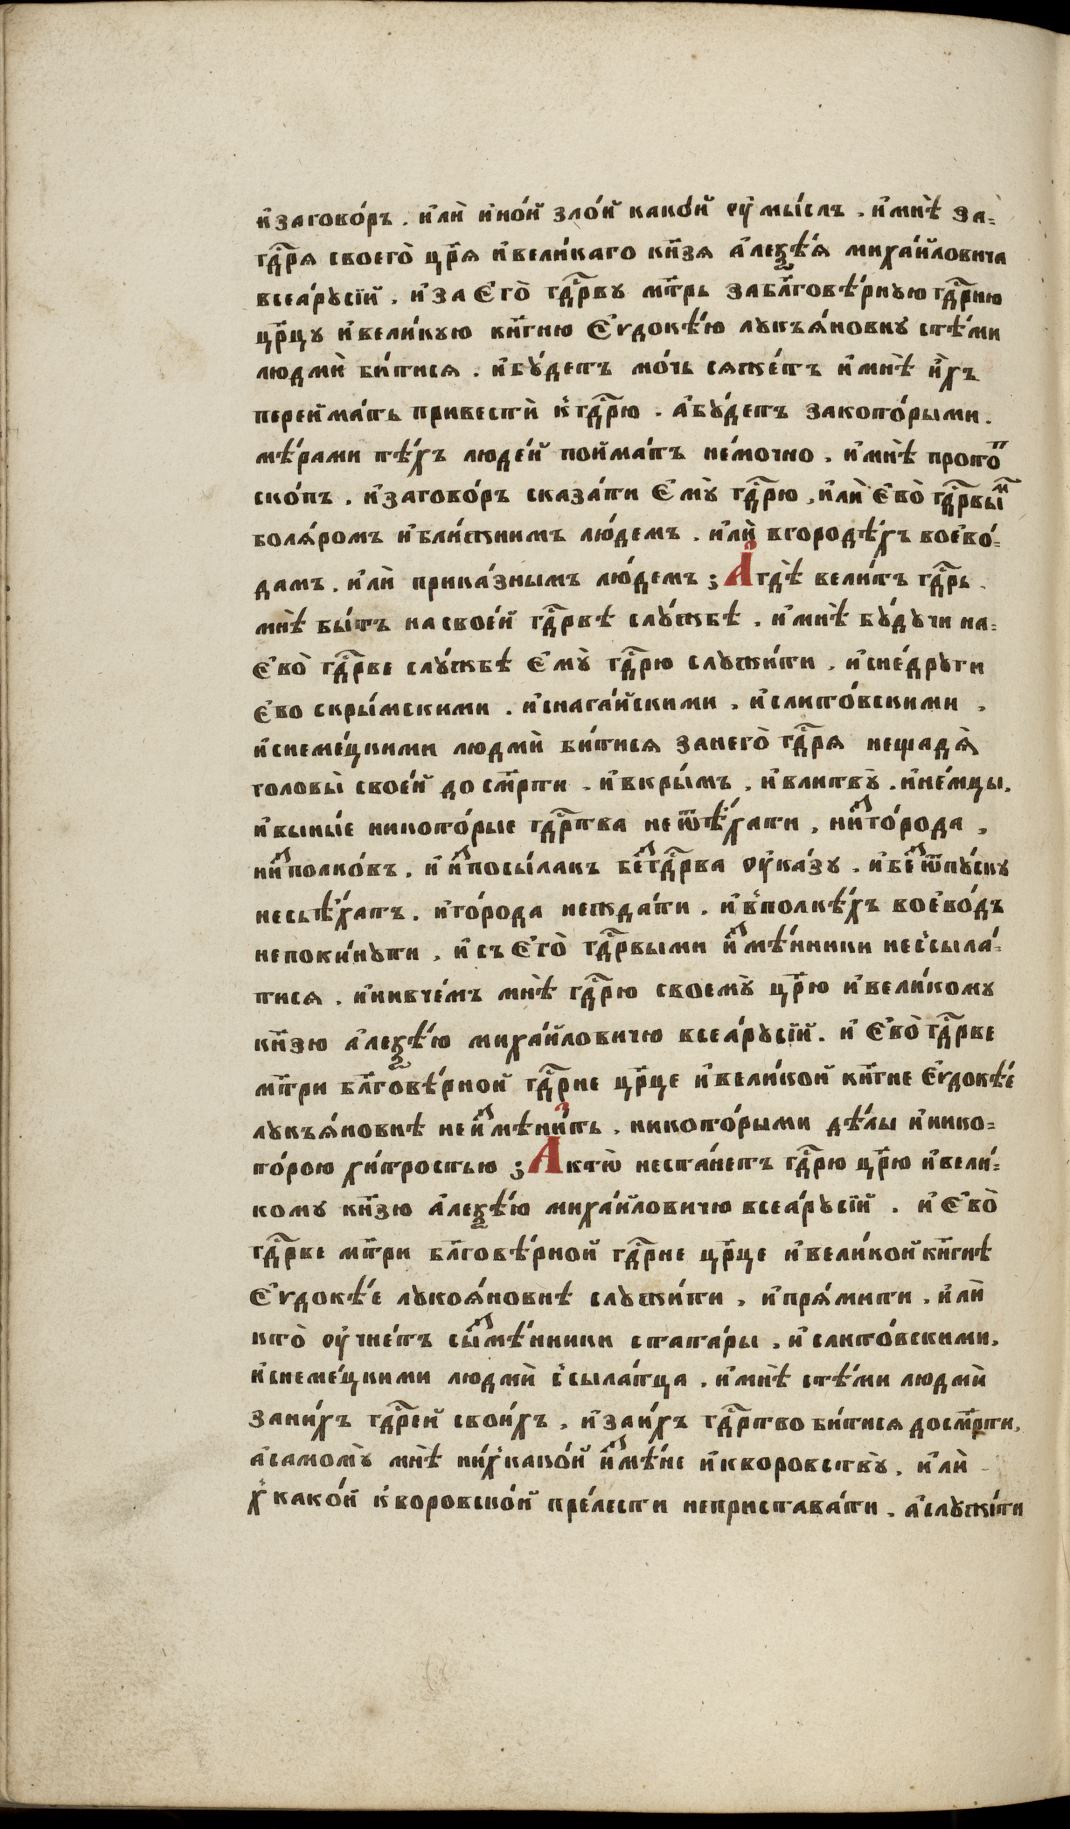 и҆заговóръ . и҆лѝ и҆нóй злóй какóй ᲂу҆мы́слъ . и҆мнѣ̀ за=
гдⷭ҇ря своегѡ̀ црⷭ҇я и҆вели́каго кн҃зя а҆леѯѣ́я миха́йловича
всеа́рꙋсїй . и҆за Є҆гѡ̀ гдⷭ҇рву мт҃рь забл҃говѣ́рнꙋю гдⷭ҇рню
црⷭ҇цу и҆вели́кую кн҃гню Є҆ѵдокѣ́ю лукъя́новну стѣ́ми
людмѝ би́тися . и҆бꙋ́детъ мóчь сяже́тъ и҆мнѣ̀ и҆́хъ
перейма́ть привестѝ к̾гдⷭ҇рю . а҆бꙋ́детъ закотóрыми .
мѣ́рами тѣ́хъ люде́й пойма́тъ не́мочно . и҆мнѣ̀ протоⷮ
скóпъ . и҆заговóръ сказа́ти Є҆мꙋ̀ гдⷭ҇рю , и҆лѝ Є҆вò гдⷭ҇рвыⷨ
боля́ромъ и҆бли́жнимъ лю́демъ . и҆лѝ вгородѣ́хъ воевó=
дамъ . и҆лѝ прика́знымъ лю́демъ ; А҆гдѣ̀ вели́тъ гдⷭ҇рь .
мнѣ̀ бы́тъ насвое́й гдⷭ҇рвѣ слꙋ́жбѣ . и҆мнѣ̀ бꙋ́дꙋчи на=
Є҆вò гдⷭ҇рве слꙋ́жбѣ Є҆мꙋ̀ гдⷭ҇рю слꙋжи́ти . и҆сне́други
є҆во скры́мскими . и҆снага́йскими . и҆слитóвскими ,
и҆снеме́цкими людмѝ би́тися занегò гдⷭ҇ря нещадя̀
головы̀ свое́й до см҃рти . и҆вкры́мъ . и҆влитвꙋ̀ . и҆не́мцы .
и҆вины́е никотóрые гдⷭ҇ртва неѿѣ́хати , ниⷥгóрода ,
ниⷥполкóвъ , и҆иⷥпосы́лакъ беⷥгдⷭ҇рва ᲂу҆ка́зу . и҆беⷥѿпꙋ́ску
несъѣ́хатъ . и҆гóрода неждати . и҆в̾полкѣ́хъ воевóдъ
непоки́нꙋти , и҆съ Є҆гò гдⷭ҇рвыми иⷥмѣ́нники нес̾сыла́=
тися . и҆нивче́мъ мнѣ̀ гдⷭ҇рю своемꙋ̀ црⷭ҇ю и҆вели́кому
кн҃зю а҆леѯѣ́ю миха́йловичю всеа́рꙋсїй . и҆ Є҆вò гдⷭ҇рве
мт҃ри бл҃говѣ́рной гдⷭ҇рне црⷭ҇це и҆вели́кой кн҃гне Є҆ѵдокѣ́е
лукъя́новнѣ неиⷥмѣни́ть . никотóрыми дѣ́лы и҆нико=
тóрою хи́тростью ; А҆ктѡ̀ неста́нетъ гдⷭ҇рю црⷭ҇ю и҆вели́=
кому кн҃зю а҆леѯѣ́ю миха́йловичю всеа́рꙋсїй . и҆ Є҆вò
гдⷭ҇рве мт҃ри бл҃говѣ́рной гдⷭ҇рне црⷭ҇це и҆вели́кой кн҃гнѣ
Є҆ѵдокѣ́е лꙋкоя́новнѣ слꙋжи́ти , и҆пря́мити . и҆лѝ
ктò ᲂу҆чне́тъ сыⷥмѣ́нники стата́ры . и҆слитóвскими .
и҆снеме́цкими людмѝ с̾сыла́тца . и҆мнѣ̀ стѣ́ми людмѝ
зани́хъ гдⷭ҇рей свои́хъ . и҆заи́хъ гдⷭ҇ртво би́тися досм҃рти .
а҆самомꙋ̀ мнѣ̀ ních̾какóй иⷥмѣ́не и҆кворовствꙋ̀ . и҆лѝ
х̾какóй к̾воровскóй пре́лести непристава́ти . а҆слꙋжи́ти